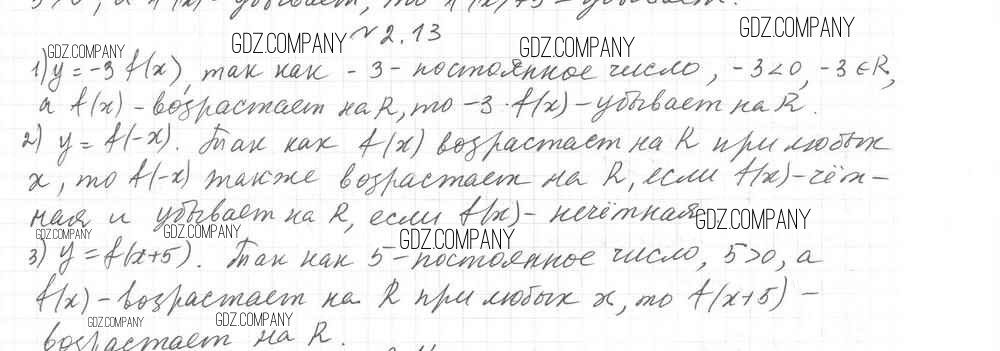 № 2.13
1) y = -3 f(x), так как - 3 - постоянное число, -3<0, -3 ∈ R,
а f(x) - возрастает на R, то -3 · f(x) - убывает на R.
2) y = f(-x). Так как f(x) возрастает на R при любых
x, то f(-x) также возрастает на R, если f(x) - чёт-
ная и убывает на R, если f(x) - нечётная
3) y = f(x+5). Так как 5 - постоянное число, 5>0, а
f(x) - возрастает на R при любых x, то f(x+5) -
возрастает на R.
GDZ.COMPANY
GDZ.COMPANY
GDZ.COMPANY
GDZ.COMPANY
GDZ.COMPANY
GDZ.COMPANY
GDZ.COMPANY
GDZ.COMPANY
GDZ.COMPANY
GDZ.COMPANY